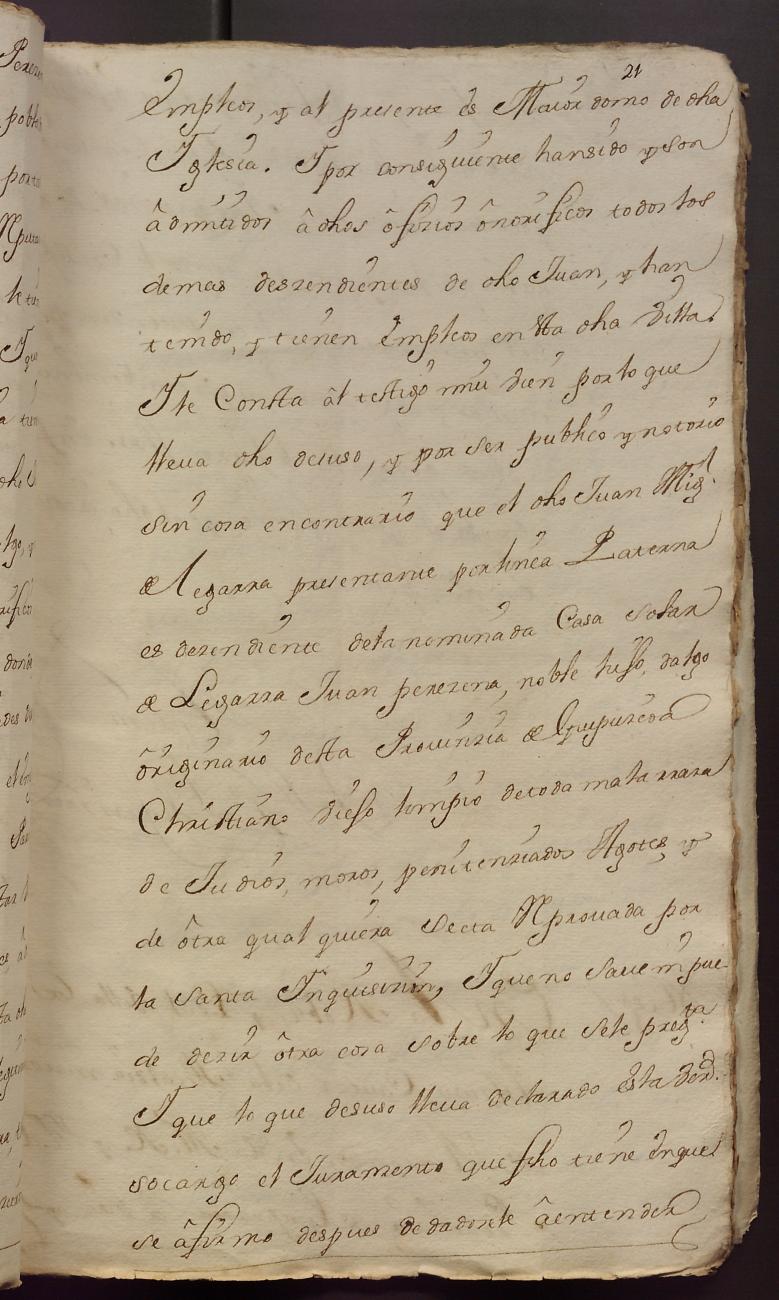 21
Empleos, y al presente es Maiordomo de dha
Yglesia. Y por consiguiente hansido y son
âdmitidos â dhos ôfizios ônorificos todos los
demas deszendientes de dho Juan, y han
tenido, y tienen Empleos en Sta dha Villa.
Y le Consta âl testigo mui vien por lo que
lleua dho desuso, y por ser publico y notorio
sin cosa encontrario que el dho Juan Migl.
de Legarra presentante por linea Paterna
es dezendiente dela nominada Casa Solar
de Legarra Juan perezena, noble hijo dalgo
ôriginario desta Prouinzia de Guipuzcoa
Christiano viejo limpio detoda mala rraza
de Judios, moros, penitenziados Agotes, y
de ôtra qual quiera Secta Rprouada por
la Santa Ynquisizion, Y que no saue ni pue
de dezir ôtra cosa sobre lo que Sele pregta.
Y que lo que desuso lleua declarado Esla Verd.
socargo el Juramento que fho tiene Enquel
se âfirmo despues de dadosele âentender